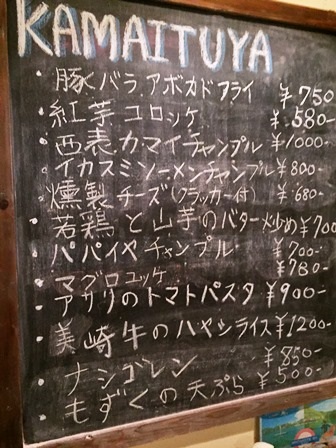 KAMAITUYA
・豚バラ アボカドフライ ¥750
・紅芋コロッケ ¥580-
・西表カマイチャンプル ¥1000-
・イカスミソーメンチャンプル ¥800-
・燻製チーズ(クラッカー付) ¥680-
・若鶏と山芋のバター炒め ¥700
・パパイヤチャンプルー ¥700-
・マグロユッケ ¥780-
・アサリのトマトパスタ ¥900-
・美崎牛のハヤシライス ¥1200-
・ナシゴレン ¥850-
・もずくの天ぷら ¥500-